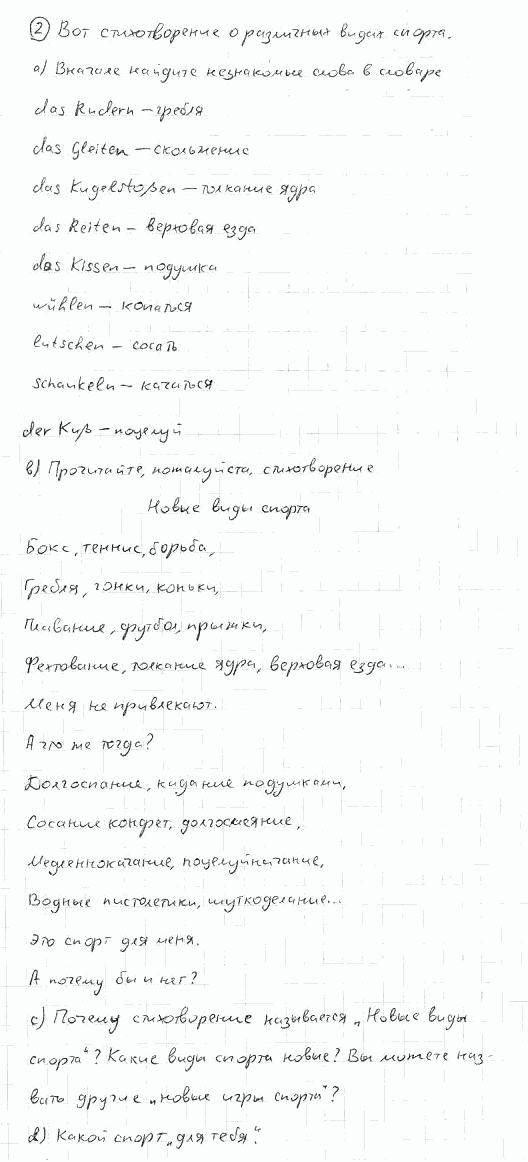 ② Вот стихотворение о различных видах спорта.
а) Вначале найдите незнакомые слова в словаре
das Rudern – гребля
das Gleiten – скольжение
das Kugelstoßen – толкание ядра
das Reiten – верховая езда
das Kissen – подушка
wühlen – копаться
lutschen – сосать
schaukeln – качаться
der Kuß – поцелуй
b) Прочитайте, пожалуйста, стихотворение
Новые виды спорта
Бокс, теннис, борьба,
Гребля, гонки, коньки,
Плавание, футбол, прыжки,
Фехтование, толкание ядра, верховая езда...
Меня не привлекают.
А что же тогда?
Долгоспание, кидание подушками,
Сосание конфет, долгосмеяние,
Медленнокачание, поцелуйкачание,
Водные пистолетики, шуткоделание...
Это спорт для меня.
А почему бы и нет?
c) Почему стихотворение называется „Новые виды
спорта“? Какие виды спорта новые? Вы можете наз-
вать другие „новые игры спорта“?
d) Какой спорт „для тебя“.